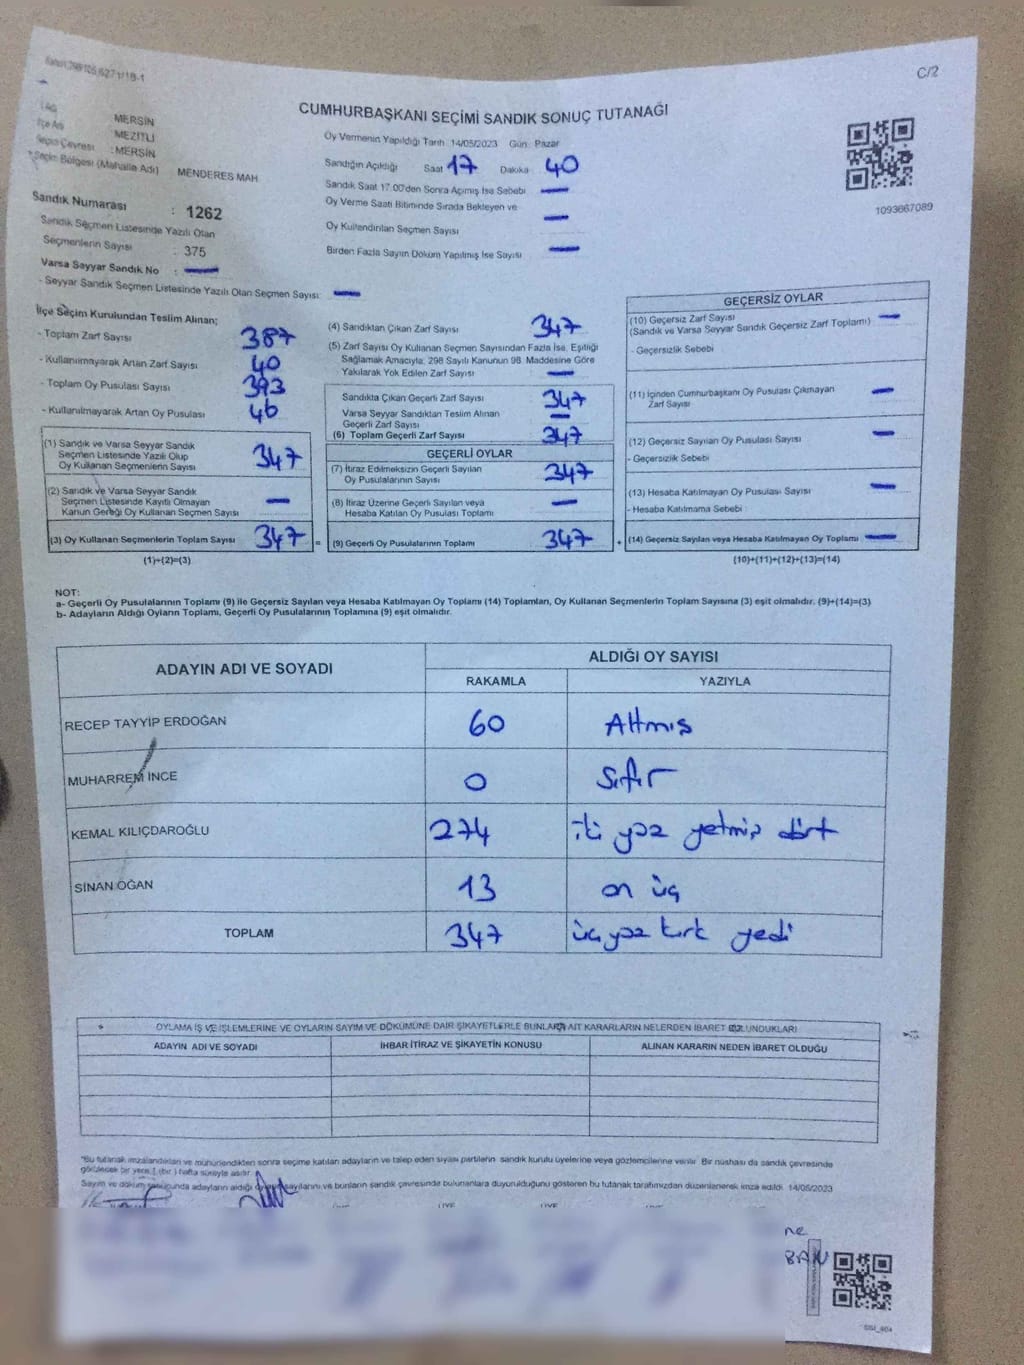 C/2
CUMHURBAŞKANI SEÇİMİ SANDIK SONUÇ TUTANAĞI
İlçe Adı
Seçim Çevresi
Seçim Bölgesi (Mahalle Adı)
MERSİN
MEZİTLİ
:MERSİN
MENDERES MAH.
Oy Vermenin Yapıldığı Tarih: 14/05/2023 Gün: Pazar
Sandığın Açıldığı Saat 17 Dakika 40
Sandık Saat 17.00'den Sonra Açımış İse Sebebi —
Oy Verme Saati Bitiminde Sırada Bekleyen ve
Oy Kullandırılan Seçmen Sayısı —
Birden Fazla Sayım Döküm Yapılmış İse Sayısı —
1093667089
Sandık Numarası : 1262
Sandık Seçmen Listesinde Yazılı Olan
Seçmenlerin Sayısı : 375
Varsa Seyyar Sandık No : —
- Seyyar Sandık Seçmen Listesinde Yazılı Olan Seçmen Sayısı: —
İlçe Seçim Kurulundan Teslim Alınan;
- Toplam Zarf Sayısı 387
- Kullanılmayarak Artan Zarf Sayısı 40
- Toplam Oy Pusulası Sayısı 393
- Kullanılmayarak Artan Oy Pusulası 46
(1) Sandık ve Varsa Seyyar Sandık
Seçmen Listesinde Yazılı Olup
Oy Kullanan Seçmenlerin Sayısı 347
(2) Sandık ve Varsa Seyyar Sandık
Seçmen Listesinde Kayıtlı Olmayan
Kanun Gereği Oy Kullanan Seçmen Sayısı —
(3) Oy Kullanan Seçmenlerin Toplam Sayısı 347 =
(1)+(2)=(3)
(4) Sandıktan Çıkan Zarf Sayısı 347
(5) Zarf Sayısı Oy Kullanan Seçmen Sayısından Fazla İse, Eşitliği
Sağlamak Amacıyla, 298 Sayılı Kanunun 98. Maddesine Göre
Yakılarak Yok Edilen Zarf Sayısı —
Sandıkta Çıkan Geçerli Zarf Sayısı 347
Varsa Seyyar Sandıktan Teslim Alınan
Geçerli Zarf Sayısı —
(6) Toplam Geçerli Zarf Sayısı 347
GEÇERLİ OYLAR
(7) İtiraz Edilmeksizin Geçerli Sayılan
Oy Pusulalarının Sayısı 347
(8) İtiraz Üzerine Geçerli Sayılan veya
Hesaba Katılan Oy Pusulası Toplamı —
(9) Geçerli Oy Pusulalarının Toplamı 347 +
GEÇERSİZ OYLAR
(10) Geçersiz Zarf Sayısı —
(Sandık ve Varsa Seyyar Sandık Geçersiz Zarf Toplamı)
- Geçersizlik Sebebi
(11) İçinden Cumhurbaşkanı Oy Pusulası Çıkmayan
Zarf Sayısı —
(12) Geçersiz Sayılan Oy Pusulası Sayısı —
- Geçersizlik Sebebi
(13) Hesaba Katılmayan Oy Pusulası Sayısı —
- Hesaba Katılmama Sebebi
(14) Geçersiz Sayılan veya Hesaba Katılmayan Oy Toplamı —
(10)+(11)+(12)+(13)=(14)
NOT:
a- Geçerli Oy Pusulalarının Toplamı (9) ile Geçersiz Sayılan veya Hesaba Katılmayan Oy Toplamı (14) Toplamları, Oy Kullanan Seçmenlerin Toplam Sayısına (3) eşit olmalıdır. (9)+(14)=(3)
b- Adayların Aldığı Oyların Toplamı, Geçerli Oy Pusulalarının Toplamına (9) eşit olmalıdır.
ADAYIN ADI VE SOYADI
ALDIĞI OY SAYISI
RAKAMLA YAZIYLA
RECEP TAYYİP ERDOĞAN 60 Altmış
MUHARREM İNCE 0 Sıfır
KEMAL KILIÇDAROĞLU 274 iki yüz yetmiş dört
SİNAN OĞAN 13 on üç
TOPLAM 347 üç yüz kırk yedi
OYLAMA İŞ VE İŞLEMLERİNE VE OYLARIN SAYIM VE DÖKÜMÜNE DAİR ŞİKAYETLERLE BUNLARA AİT KARARLARIN NELERDEN İBARET BULUNDUKLARI
ADAYIN ADI VE SOYADI İHBAR İTİRAZ VE ŞİKAYETİN KONUSU ALINAN KARARIN NEDEN İBARET OLDUĞU
*Bu tutanak imzalandıktan ve mühürlendikten sonra seçime katılan adayların ve talep eden siyasi partilerin sandık kurulu üyelerine veya gözlemcilerine verilir. Bir nüshası da sandık çevresinde
görülecek bir yere 1 (bir) hafta süreyle asılır.
Sayım ve döküm sonucunda adayların aldığı oy sayılarını ve bunların sandık çevresinde bulunanlara duyurulduğunu gösteren bu tutanak tarafımızdan düzenlenerek imza edildi. 14/05/2023
ne
BAN